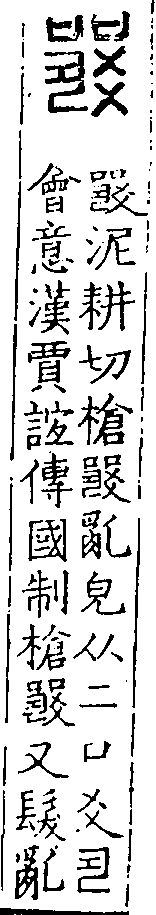 𤕦泥耕切槍𤕦亂皃从二口爻己
會意漢賈誼傳國制槍𤕦又鬤亂